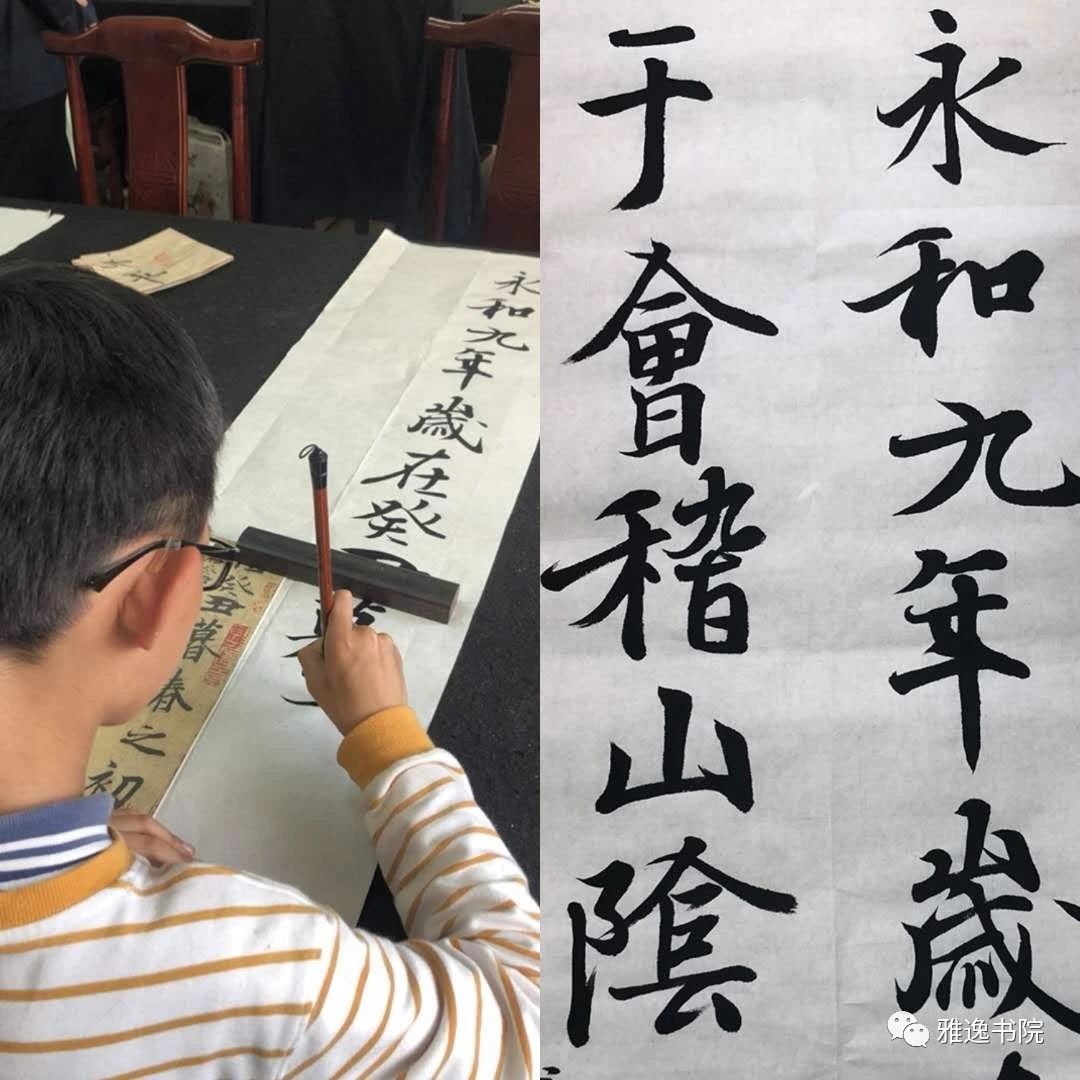 永和九年歲在癸丑
暮春之初
永和九年歲
于會稽山陰
雅逸书院